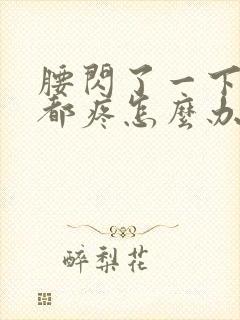 腰閃了一下
都疼怎麼办
醉梨花